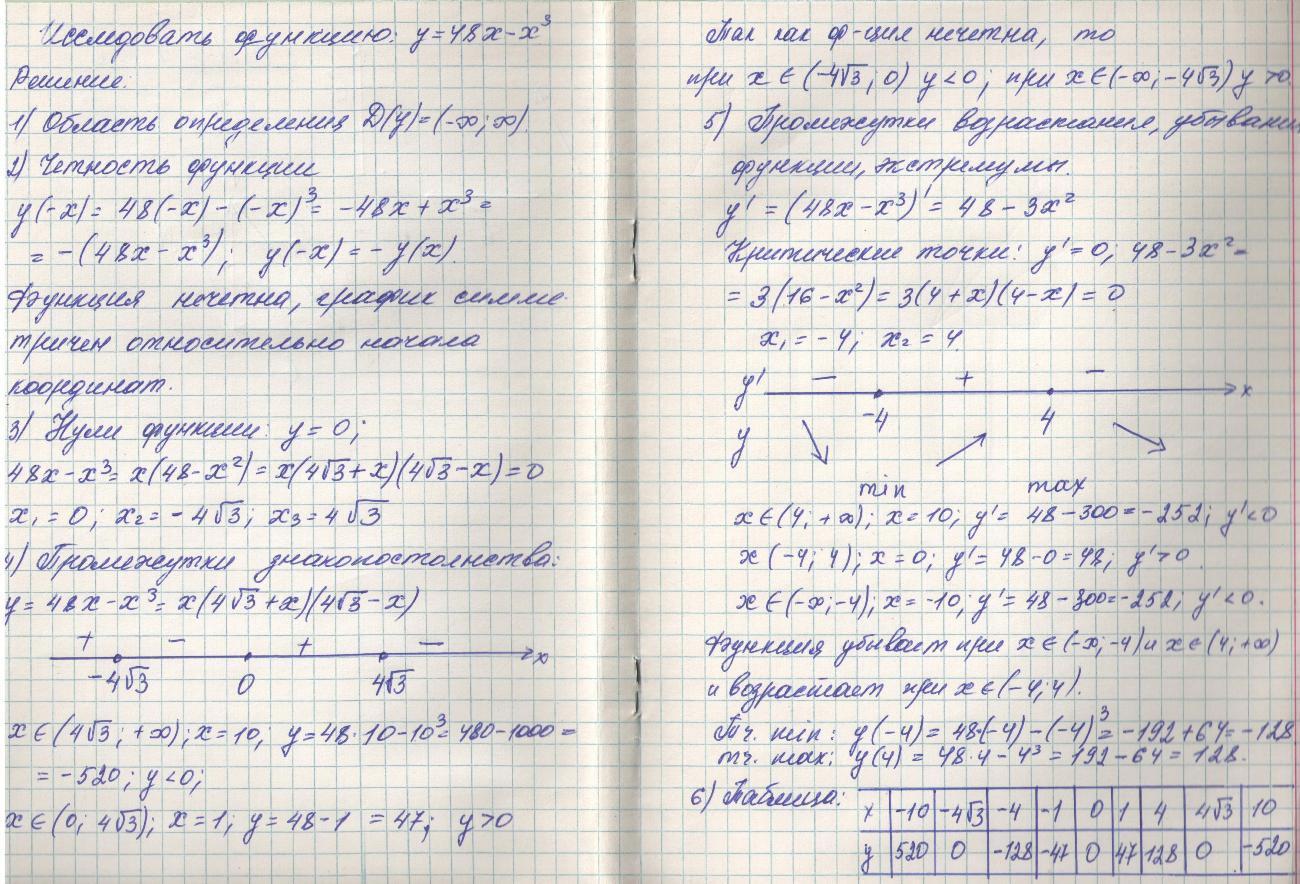 Исследовать функцию: y=48x-x³
Решение.
1) Область определения D(y)=(-∞;∞).
2) Четность функции
y(-x)= 48(-x)-(-x)³= -48x+x³=
= -(48x-x³); y(-x)=-y(x).
Функция нечетна, график симме-
тричен относительно начала
координат.
3) Нули функции: y=0;
48x-x³= x(48-x²)=x(4√3+x)(4√3-x)=0
x₁=0; x₂=-4√3; x₃=4√3
4) Промежутки знакопостоянства:
y=48x-x³=x(4√3+x)(4√3-x)
+ - + -
-4√3 0 4√3 x
x∈(4√3;+∞); x=10; y=48·10-10³=480-1000=
= -520; y<0;
x∈(0; 4√3); x=1; y=48-1 =47; y>0
Так как ф-ция нечетна, то
при x∈(-4√3; 0) y<0; при x∈(-∞;-4√3) y>0.
5) Промежутки возрастания, убывания
функции, экстремумы.
y'=(48x-x³)'=48-3x²
Критические точки: y'=0; 48-3x²=
= 3(16-x²)=3(4+x)(4-x)=0
x₁=-4; x₂=4.
y' - + -
-4 4 x
y ↘ ↗ ↘
min max
x∈(4;+∞); x=10; y'= 48-300=-252; y'<0
x(-4;4); x=0; y'=48-0=48; y'>0.
x∈(-∞;-4); x=-10; y'=48-300=-252; y'<0.
Функция убывает при x∈(-∞;-4) и x∈(4;+∞)
и возрастает при x∈(-4;4).
Тч. min: y(-4)=48·(-4)-(-4)³=-192+64=-128
тч. max: y(4)=48·4-4³=192-64=128.
6) Таблица:
x -10 -4√3 -4 -1 0 1 4 4√3 10
y 520 0 -128 -47 0 47 128 0 -520